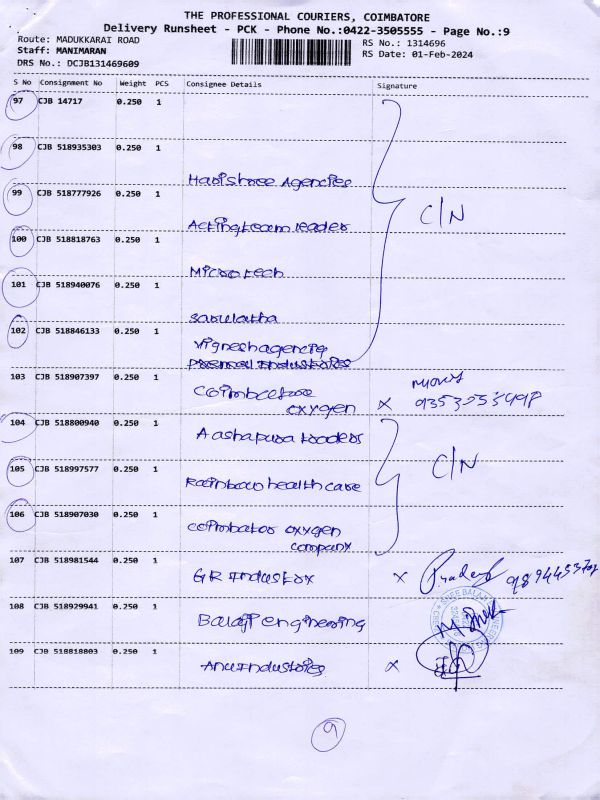 THE PROFESSIONAL COURIERS, COIMBATORE
Delivery Runsheet - PCK - Phone No.:0422-3505555 - Page No.:9
Route: MADUKKARAI ROAD
RS No.: 1314696
Staff: MANIMARAN
RS Date: 01-Feb-2024
DRS No.: DCJB131469609
S No Consignment No Weight PCS Consignee Details Signature
97 CJB 14717 0.250 1
98 CJB 518935303 0.250 1
Harishree Agencies
99 CJB 518777926 0.250 1
C/N
Acting team leader
100 CJB 518818763 0.250 1
Micro tech
101 CJB 518940076 0.250 1
Sarulatha
102 CJB 518846133 0.250 1
Vignesh agencis
103 CJB 518907397 0.250 1
Coimbatore
oxygen x
104 CJB 518800940 0.250 1
Aashapura traders
C/N
105 CJB 518997577 0.250 1
Rainbow health care
106 CJB 518907030 0.250 1
Coimbator oxygen
company
107 CJB 518981544 0.250 1
GR Industrx x
108 CJB 518929941 0.250 1
Balaji engineering
109 CJB 518818803 0.250 1
Anu Industries x
9